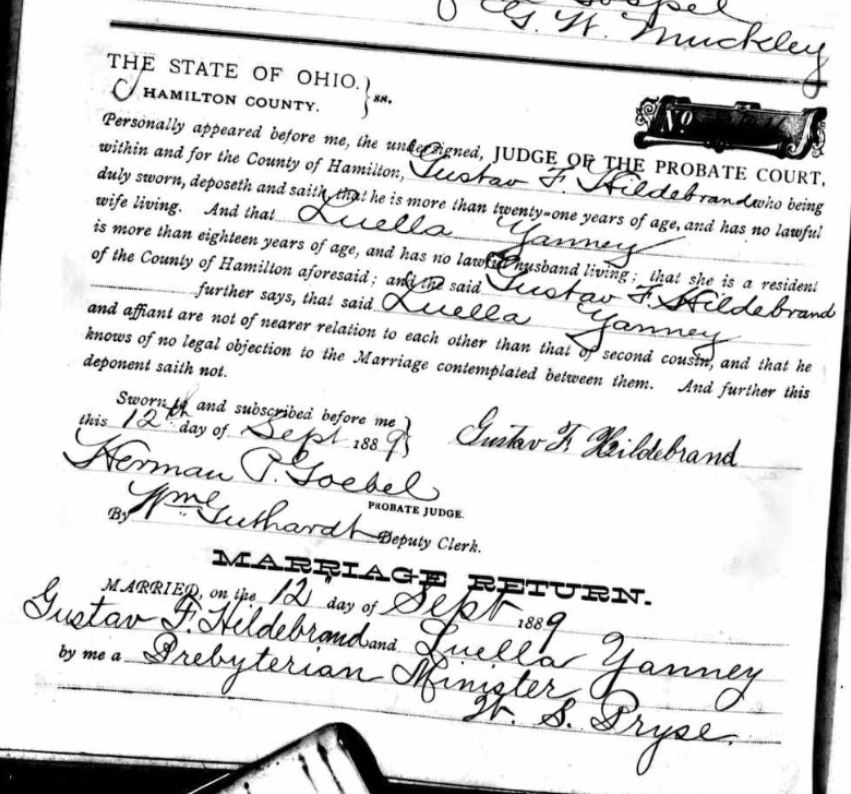 Gospel
G. W. Muckley
THE STATE OF OHIO. } ss.
HAMILTON COUNTY.
No
Personally appeared before me, the undersigned, JUDGE OF THE PROBATE COURT,
within and for the County of Hamilton, Gustav F. Hildebrand who being
duly sworn, deposeth and saith, that he is more than twenty-one years of age, and has no lawful
wife living. And that Luella Yanney
is more than eighteen years of age, and has no lawful husband living; that she is a resident
of the County of Hamilton aforesaid; and the said Gustav F. Hildebrand
further says, that said Luella Yanney
and affiant are not of nearer relation to each other than that of second cousin, and that he
knows of no legal objection to the Marriage contemplated between them. And further this
deponent saith not.
Sworn to and subscribed before me }
this 12th day of Sept 1889 } Gustav F. Hildebrand
Herman P. Goebel
PROBATE JUDGE.
By Wm Guthardt Deputy Clerk.
MARRIAGE RETURN.
MARRIED, on the 12 day of Sept 1889
Gustav F. Hildebrand and Luella Yanney
by me a Presbyterian Minister
W. S. Pryse.